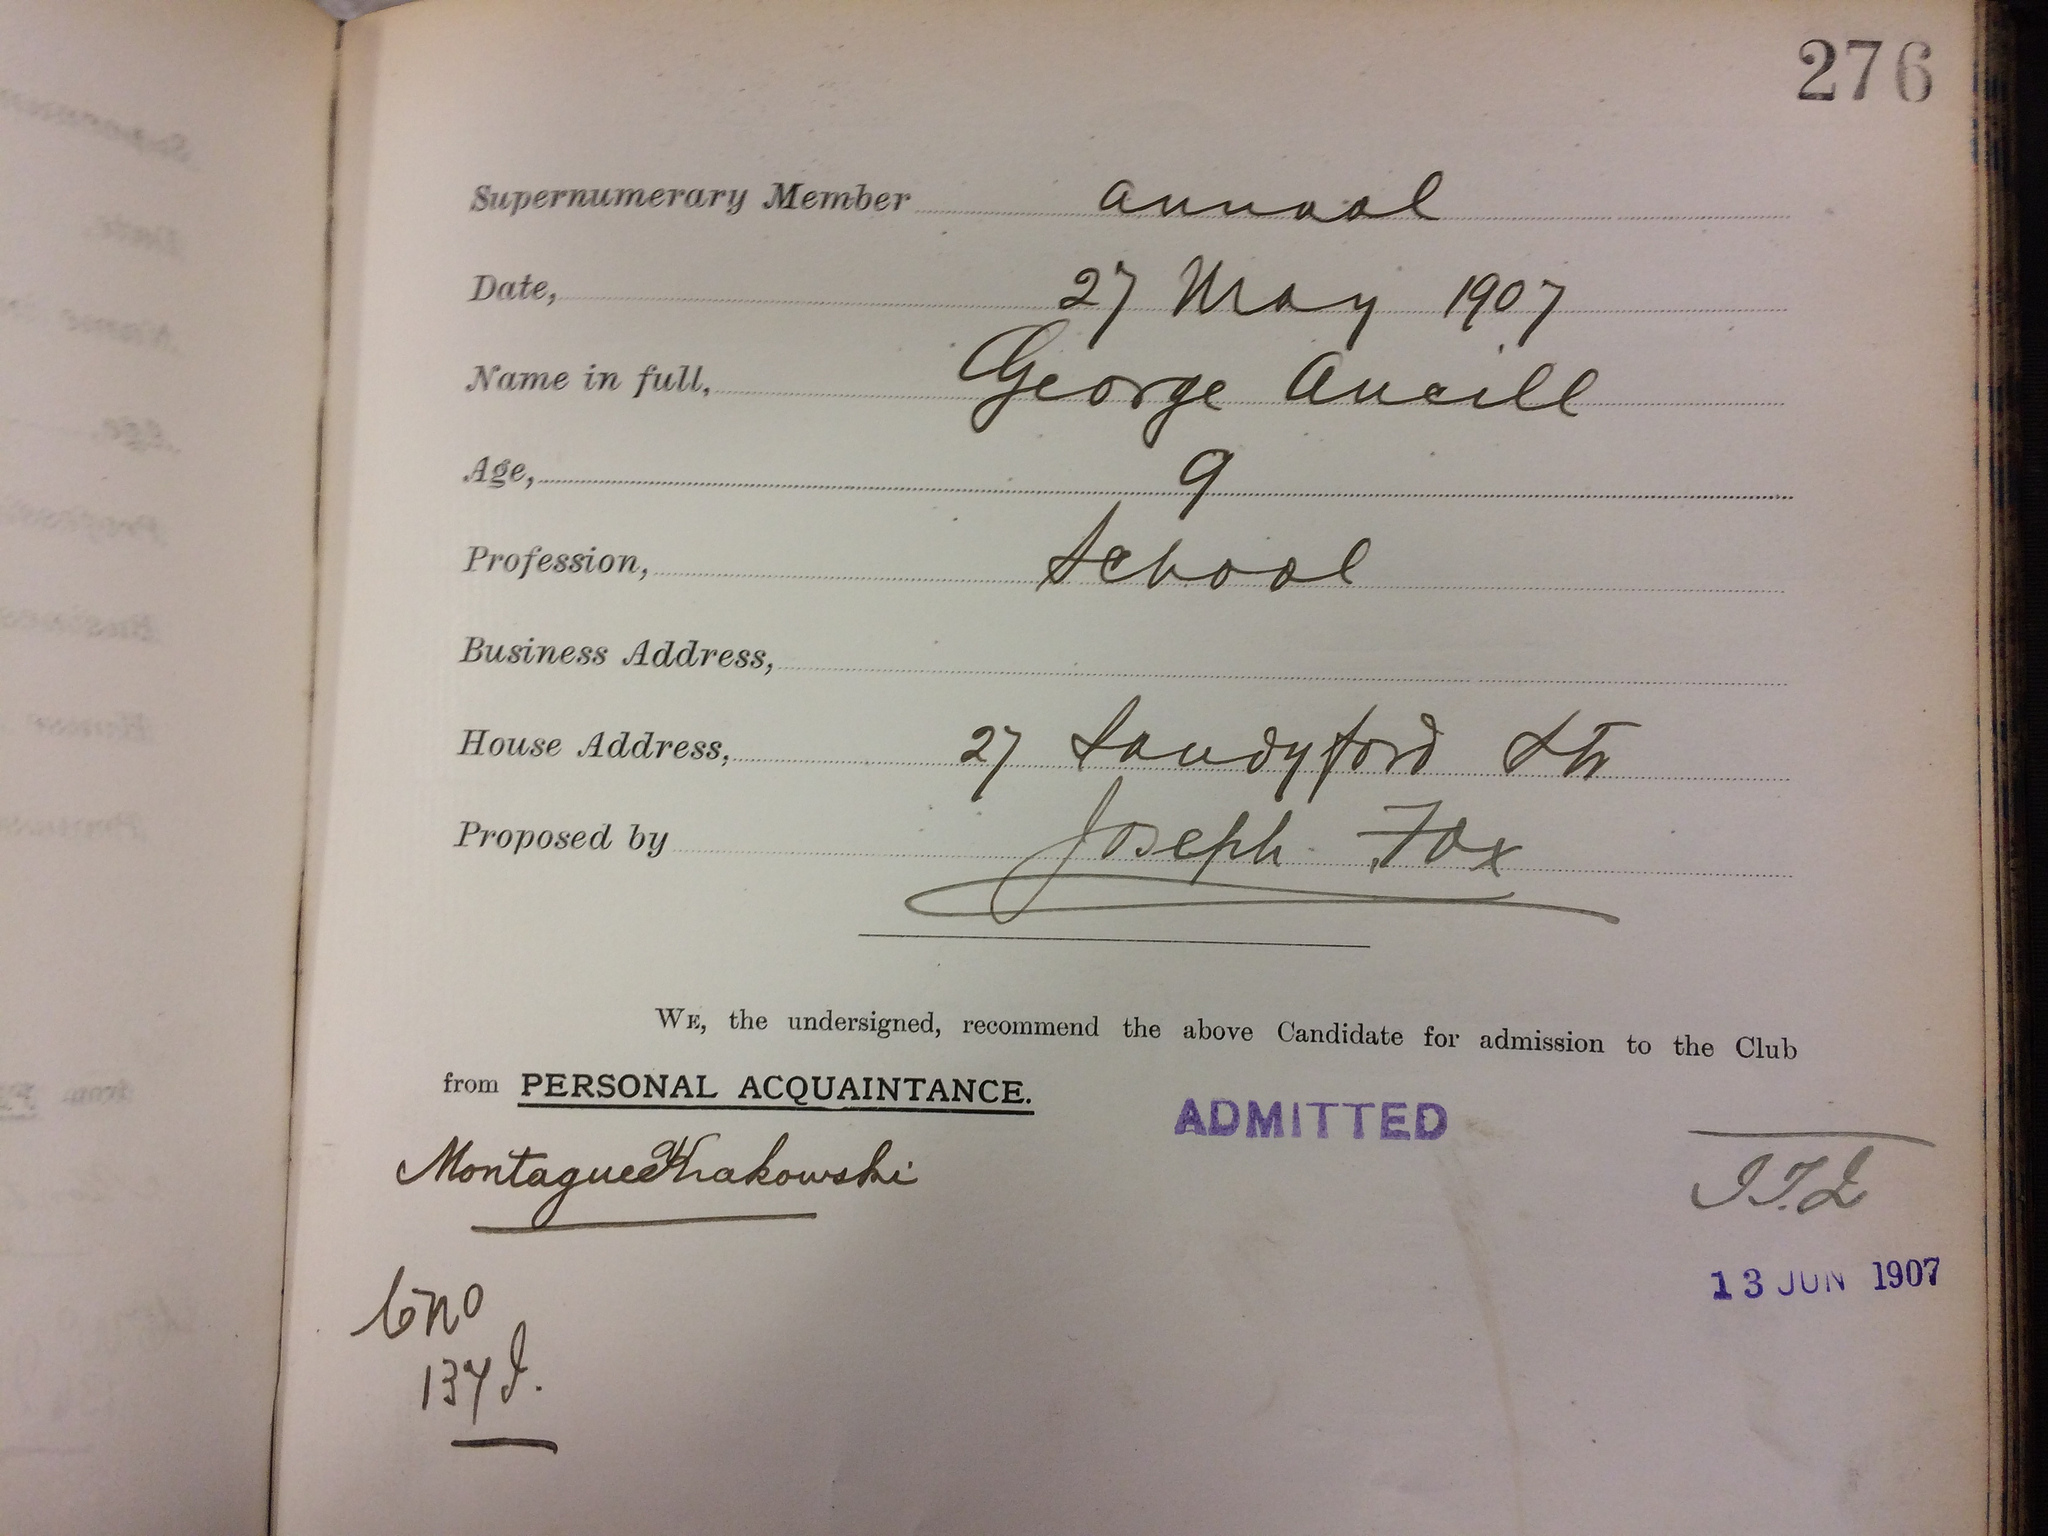 276
Supernumerary Member annual
Date, 27 May 1907
Name in full, George Ancill
Age, 9
Profession, School
Business Address,
House Address, 27 Sandyford Str
Proposed by Joseph Fox
WE, the undersigned, recommend the above Candidate for admission to the Club
from PERSONAL ACQUAINTANCE.
ADMITTED
Montague Krakowski
13 JUN 1907